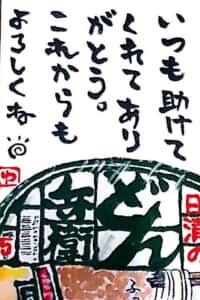 いつも助けて
くれてあり
がとう。
これからも
よろしくね
日清の
どん
兵衛